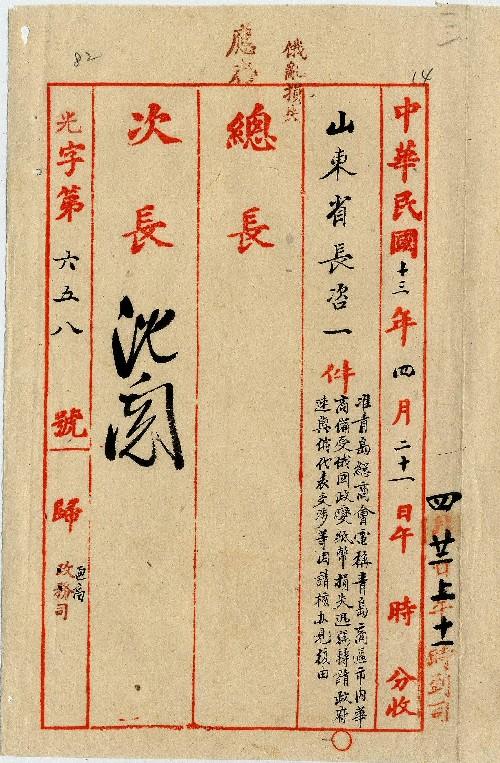 三
14
82
俄亂損失
應
中華民國十三年四月二十一日午時分收
四廿二上十一時到司
山東省長咨一件
准青島總商會電稱青島商區市內華
商備受俄国政變紙幣損失迅
轉請政府
速與俄代表交涉等因請核办見復由
總長
次長
沈閱
光字第六五八號歸
通商
政務司